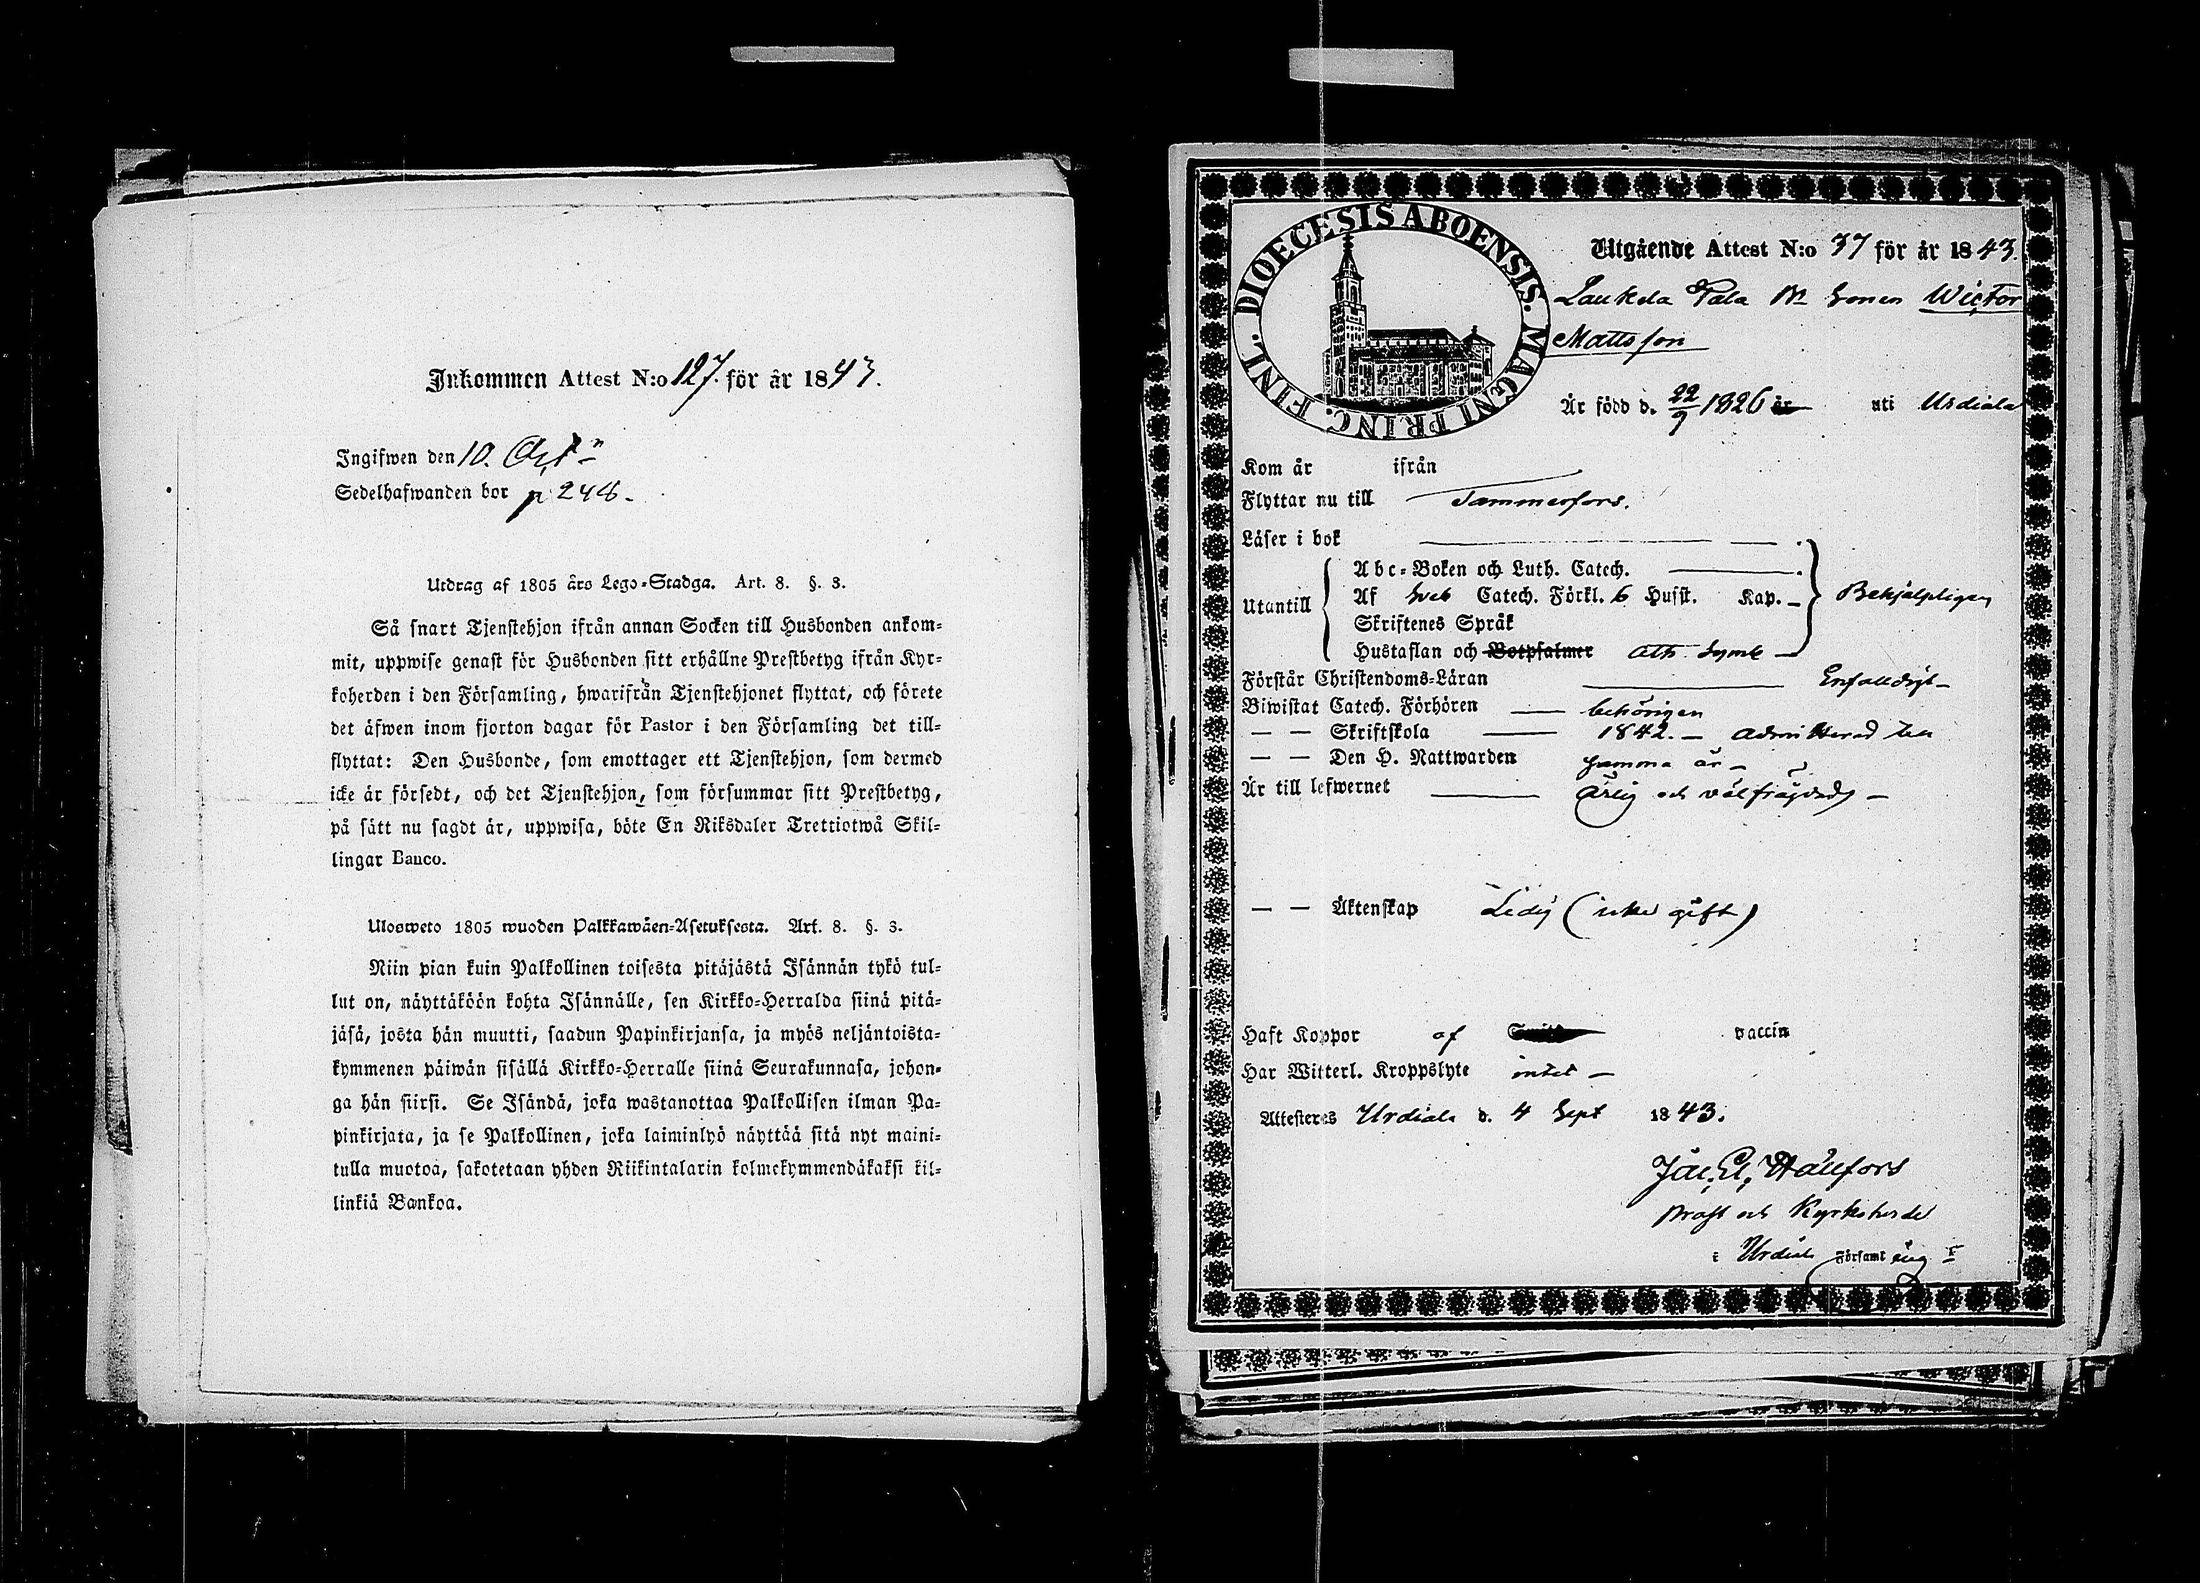 Inkommen Attest N:o 127. för år 1843.
Ingifwen den 10. Oct:n
Sedelhafwanden bor p 248.
Utdrag af 1805 års Lego-Stadga. Art. 8. §. 3.
Så snart Tjenstehjon ifrån annan Socken till Husbonden ankom-
mit, uppwise genast för Husbonden sitt erhållne Prestbetyg ifrån Kyr-
koherden i den Församling, hwarifrån Tjenstehjonet flyttat, och förete
det äfwen inom fjorton dagar för Pastor i den Församling det till-
flyttat: Den Husbonde, som emottager ett Tjenstehjon, som dermed
icke är försedt, och det Tjenstehjon, som försummar sitt Prestbetyg,
på sätt nu sagdt är, uppwisa, böte En Riksdaler Trettiotwå Skil-
lingar Banco.
Ulosweto 1805 wuoden Palkkawäen-Asetuksesta. Art. 8. §. 3.
Niin pian kuin Palkollinen toisesta pitäjästä Isännän tykö tul-
lut on, näyttäköön kohta Isännälle, sen Kirkko-Herralda siinä pitä-
jäsä, josta hän muutti, saadun Papinkirjansa, ja myös neljäntoista-
kymmenen päiwän sisällä Kirkko-Herralle siinä Seurakunnasa, johon-
ga hän siirsi. Se Isändä, joka wastanottaa Palkollisen ilman Pa-
pinkirjata, ja se Palkollinen, joka laiminlyö näyttää sitä nyt maini-
tulla muotoa, sakotetaan yhden Riikintalarin kolmekymmendäkaksi kil-
linkiä Bankoa.
DIOECESIS ABOENSIS. MAGNI PRINC. FINL.
Utgående Attest N:o 37 för år 1843.
Laukela Pala Bd Sonen Wictor
Mattsson
Är född d. 22/9 1826 år uti Urdiala
Kom år ifrån
Flyttar nu till Tammerfors.
Läser i bok
Abc-Boken och Luth. Catech.
Utantill Af Sveb Catech. Förkl. 6 Hufst. Kap. Behjelpligen
Skriftenes Språk
Hustaflan och Botpsalmer Ath. Symb
Förstår Christendoms-Läran Enfaldigt
Biwistat Catech. Förhören behörigen
— — Skriftskola 1842. admitterad
— — Den H. Nattwarden samma år
Är till lefwernet Ärlig och välfrägdad
— — Äktenskap Ledig (icke gift)
Haft Koppor af vaccin
Har Witterl. Kroppslyte intet
Attesteras Urdiala d. 4 Sept 1843.
Jac. El. Hällfors
Prost och Kyrkoherde
i Urdiala Församling